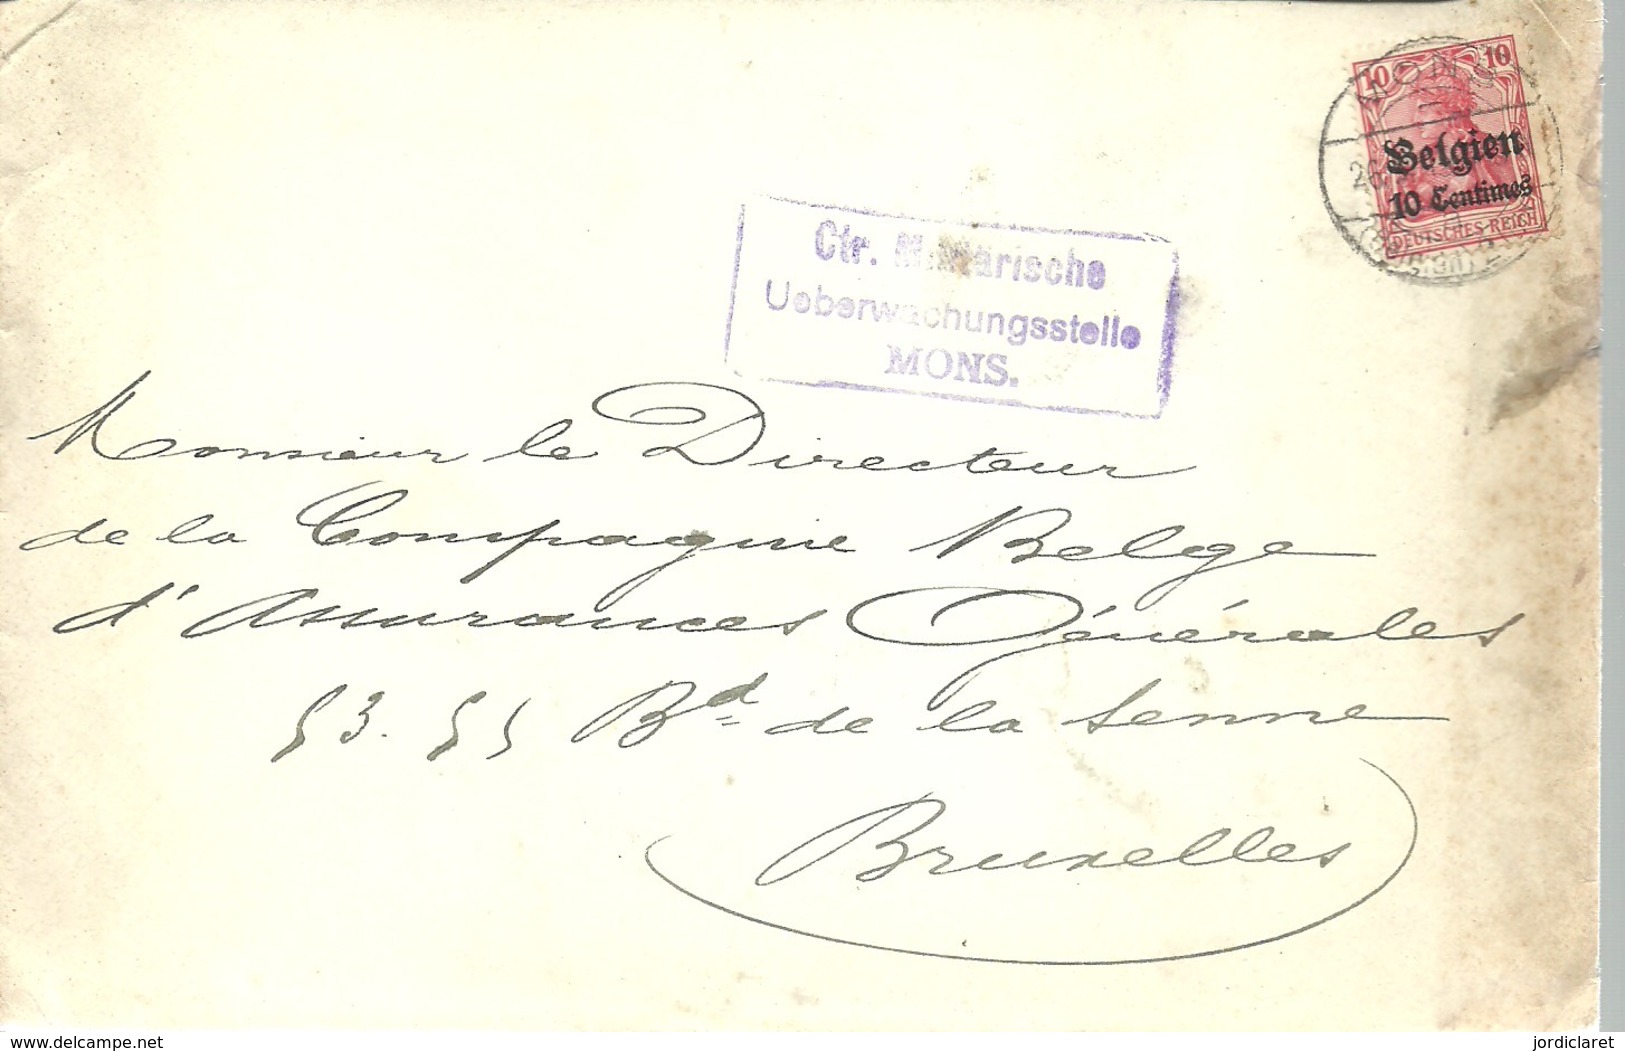 10 10
MONS
Belgien
26
10 Centimes
DEUTSCHES REICH
Ctr. Militärische
Ueberwachungsstelle
MONS.
Monsieur le Directeur
de la Compagnie Belge
d'Assurances Générales
53.55 Bd de la Senne
Bruxelles
www.delcampe.net
jordiclaret